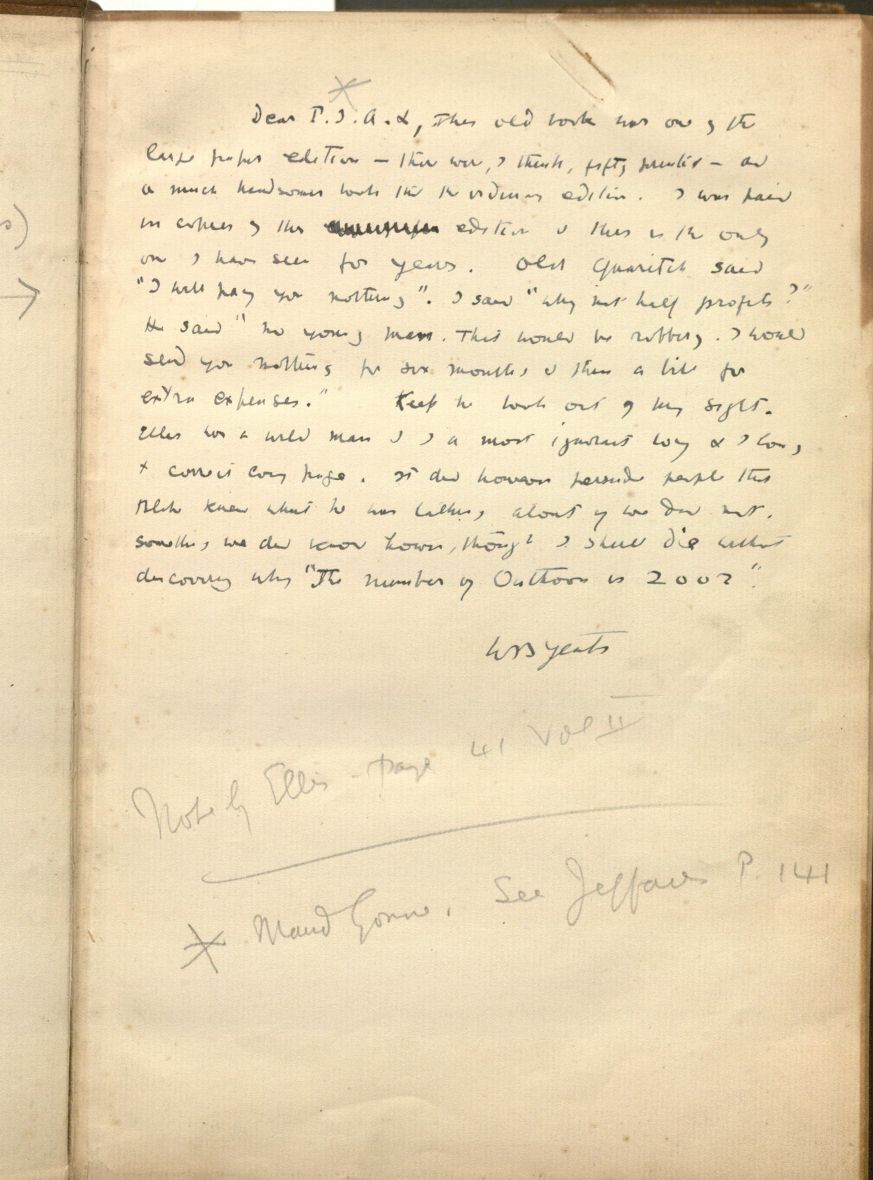 s)
Dear P.I.A.L, This old book was one of the
large paper edition — there were, I think, fifty printed — and
a much handsomer book than the ordinary edition. I was paid
in copies of this edition & this is the only
one I have seen for years. Old Quaritch said
"I will pay you nothing". I said "why not half profits?"
He said "no young man. That would be robbery. I would
send you nothing for six months & then a bill for
extra expenses." Keep the book out of my sight.
Ellis was a wild man & I a most ignorant boy & I
correct page. It did however persuade people that
Blake knew what he was talking about if we did not.
Something we did know however, though I shall die without
discovering why "The number of Oothoon is 2002".
WB Yeats
Note by Ellis - page 41 Vol II
* Maud Gonne. See Jeffares P. 141